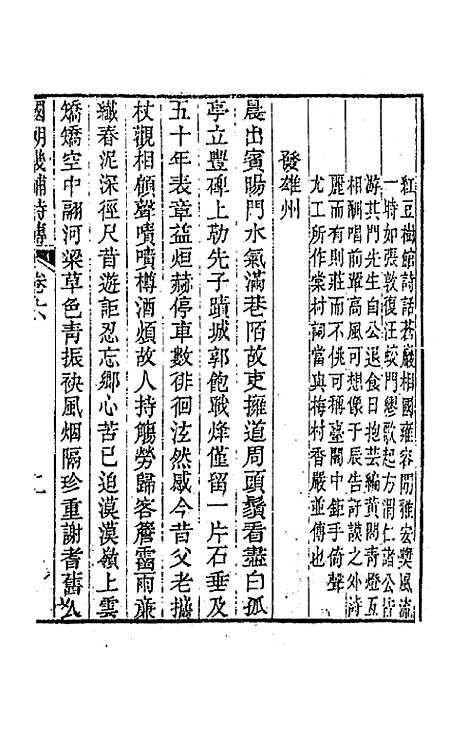 紅豆樹館詩話蒼巖相國雍容閒雅宏獎風流
一時如張敦復汪蛟門繆歌起方渭仁諸公皆
游其門先生自公退食日抱芸編黃閣靑燈互
相酬唱前輩高風可想像于辰告訏謨之外詩
麗而有則莊而不佻可稱臺閣中鉅手倚聲
尤工所作棠村詞當與梅村香嚴並傳也
發雄州
晨出賓暘門水氣滿巷陌故吏擁道周頭鬚看盡白孤
亭立豐碑上勒先子蹟城郭飽戰烽僅留一片石垂及
五十年表章益烜赫停車數徘徊泫然感今昔父老攜
杖觀相顧聲嘖嘖樽酒煩故人持觴勞歸客簷霤雨廉
纖春泥深徑尺昔遊詎忍忘鄉心苦已迫漠漠嶺上雲
矯矯空中翮河梁草色靑振袂風烟隔珍重謝耆舊公
國朝畿輔詩傳 卷十八 二